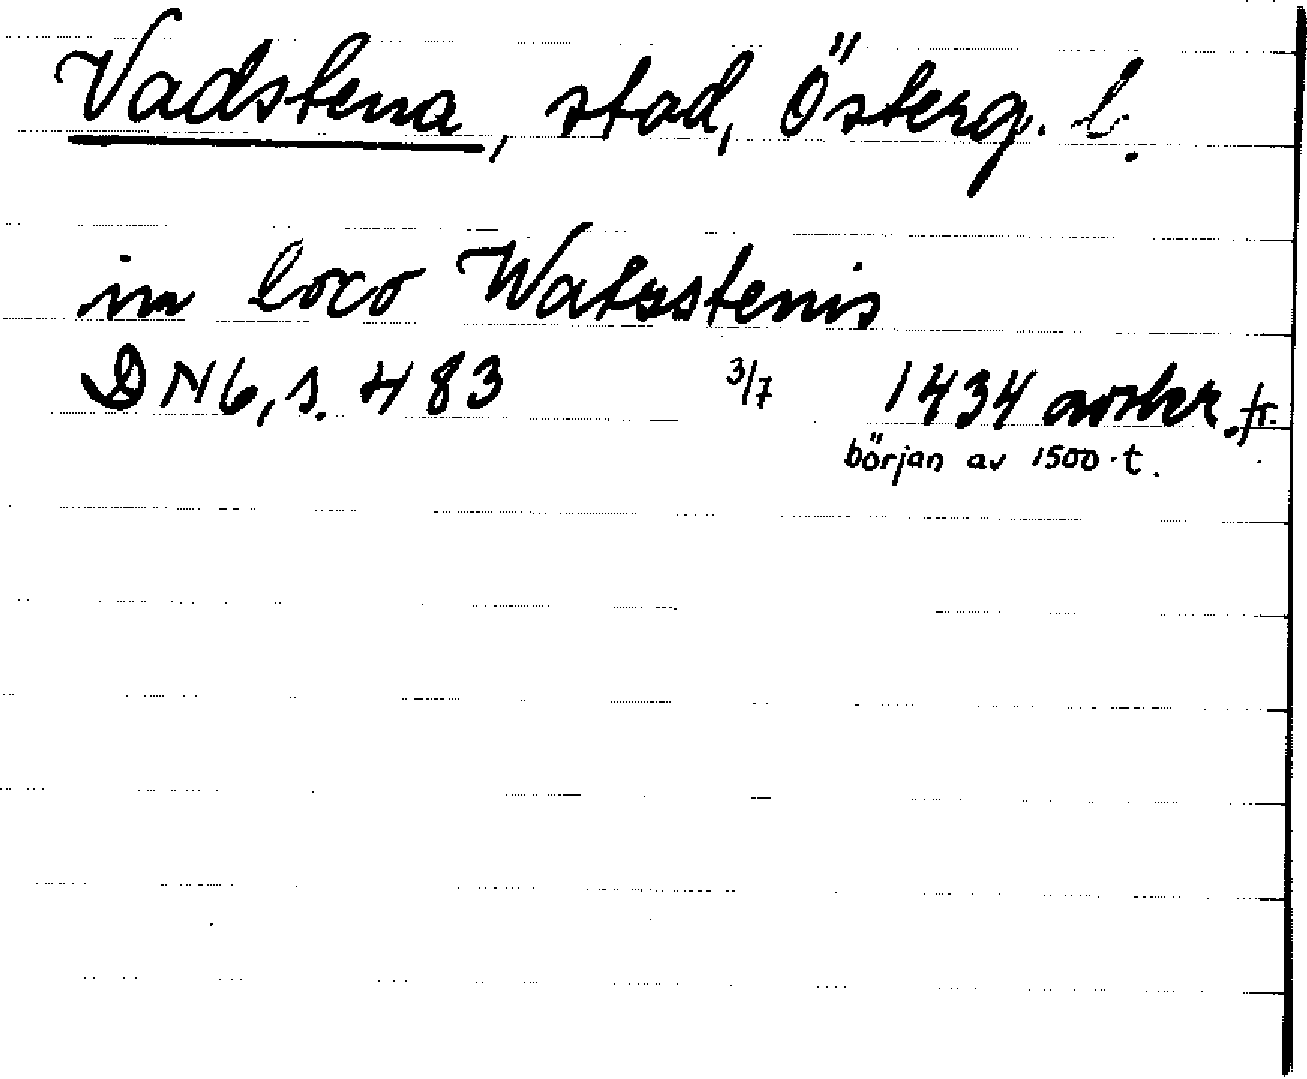 Vadstena, stad, Österg. l.
in loco Watzstenis
DN 6, s. 483 3/7 1434 avskr. fr.
början av 1500-t.